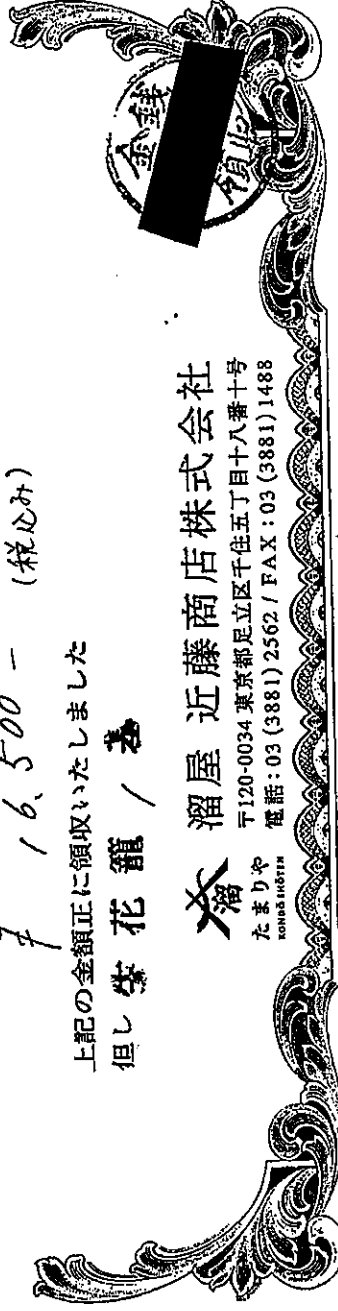 16,500- (税込み)
上記の金額正に領収いたしました
但し 生花籠 1基
溜
たまりや
KONDŌ SHŌTEN
溜屋 近藤商店株式会社
〒120-0034 東京都足立区千住五丁目十八番十号
電話：03 (3881) 2562 / FAX：03 (3881) 1488
金銭
領収